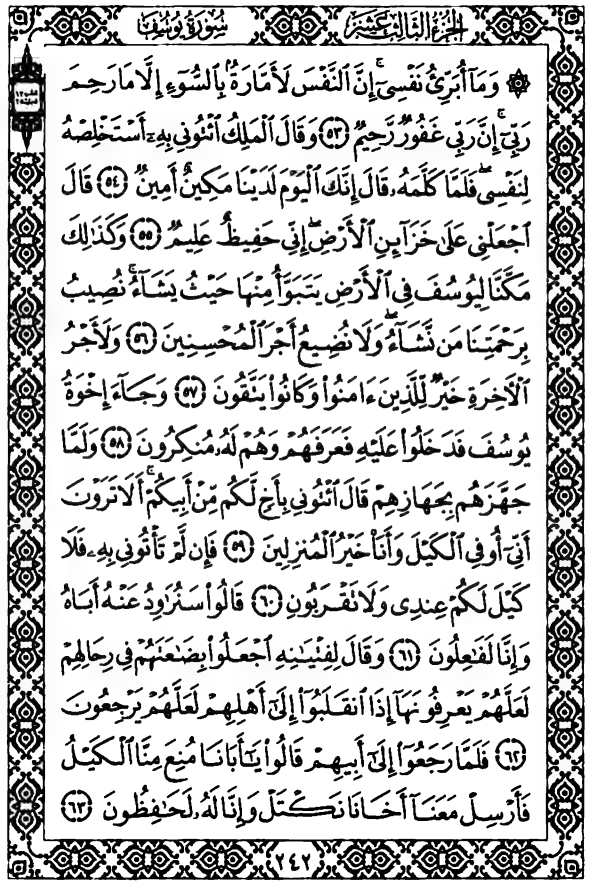 الجزء الثالث عشر
سورة يوسف
۞ وَمَآ أُبَرِّئُ نَفْسِىٓ ۚ إِنَّ ٱلنَّفْسَ لَأَمَّارَةٌۢ بِٱلسُّوٓءِ إِلَّا مَا رَحِمَ
رَبِّىٓ ۚ إِنَّ رَبِّى غَفُورٌ رَّحِيمٌ ٥٣ وَقَالَ ٱلْمَلِكُ ٱئْتُونِى بِهِۦٓ أَسْتَخْلِصْهُ
لِنَفْسِى ۖ فَلَمَّا كَلَّمَهُۥ قَالَ إِنَّكَ ٱلْيَوْمَ لَدَيْنَا مَكِينٌ أَمِينٌ ٥٤ قَالَ
ٱجْعَلْنِى عَلَىٰ خَزَآئِنِ ٱلْأَرْضِ ۖ إِنِّى حَفِيظٌ عَلِيمٌ ٥٥ وَكَذَٰلِكَ
مَكَّنَّا لِيُوسُفَ فِى ٱلْأَرْضِ يَتَبَوَّأُ مِنْهَا حَيْثُ يَشَآءُ ۚ نُصِيبُ
بِرَحْمَتِنَا مَن نَّشَآءُ ۖ وَلَا نُضِيعُ أَجْرَ ٱلْمُحْسِنِينَ ٥٦ وَلَأَجْرُ
ٱلْـَٔاخِرَةِ خَيْرٌ لِّلَّذِينَ ءَامَنُوا۟ وَكَانُوا۟ يَتَّقُونَ ٥٧ وَجَآءَ إِخْوَةُ
يُوسُفَ فَدَخَلُوا۟ عَلَيْهِ فَعَرَفَهُمْ وَهُمْ لَهُۥ مُنكِرُونَ ٥٨ وَلَمَّا
جَهَّزَهُم بِجَهَازِهِمْ قَالَ ٱئْتُونِى بِأَخٍ لَّكُم مِّنْ أَبِيكُمْ ۚ أَلَا تَرَوْنَ
أَنِّىٓ أُوفِى ٱلْكَيْلَ وَأَنَا۠ خَيْرُ ٱلْمُنزِلِينَ ٥٩ فَإِن لَّمْ تَأْتُونِى بِهِۦ فَلَا
كَيْلَ لَكُمْ عِندِى وَلَا تَقْرَبُونِ ٦٠ قَالُوا۟ سَنُرَٰوِدُ عَنْهُ أَبَاهُ
وَإِنَّا لَفَـٰعِلُونَ ٦١ وَقَالَ لِفِتْيَـٰنِهِ ٱجْعَلُوا۟ بِضَـٰعَتَهُمْ فِى رِحَالِهِمْ
لَعَلَّهُمْ يَعْرِفُونَهَآ إِذَا ٱنقَلَبُوٓا۟ إِلَىٰٓ أَهْلِهِمْ لَعَلَّهُمْ يَرْجِعُونَ
٦٢ فَلَمَّا رَجَعُوٓا۟ إِلَىٰٓ أَبِيهِمْ قَالُوا۟ يَـٰٓأَبَانَا مُنِعَ مِنَّا ٱلْكَيْلُ
فَأَرْسِلْ مَعَنَآ أَخَانَا نَكْتَلْ وَإِنَّا لَهُۥ لَحَـٰفِظُونَ ٦٣
٢٤٢